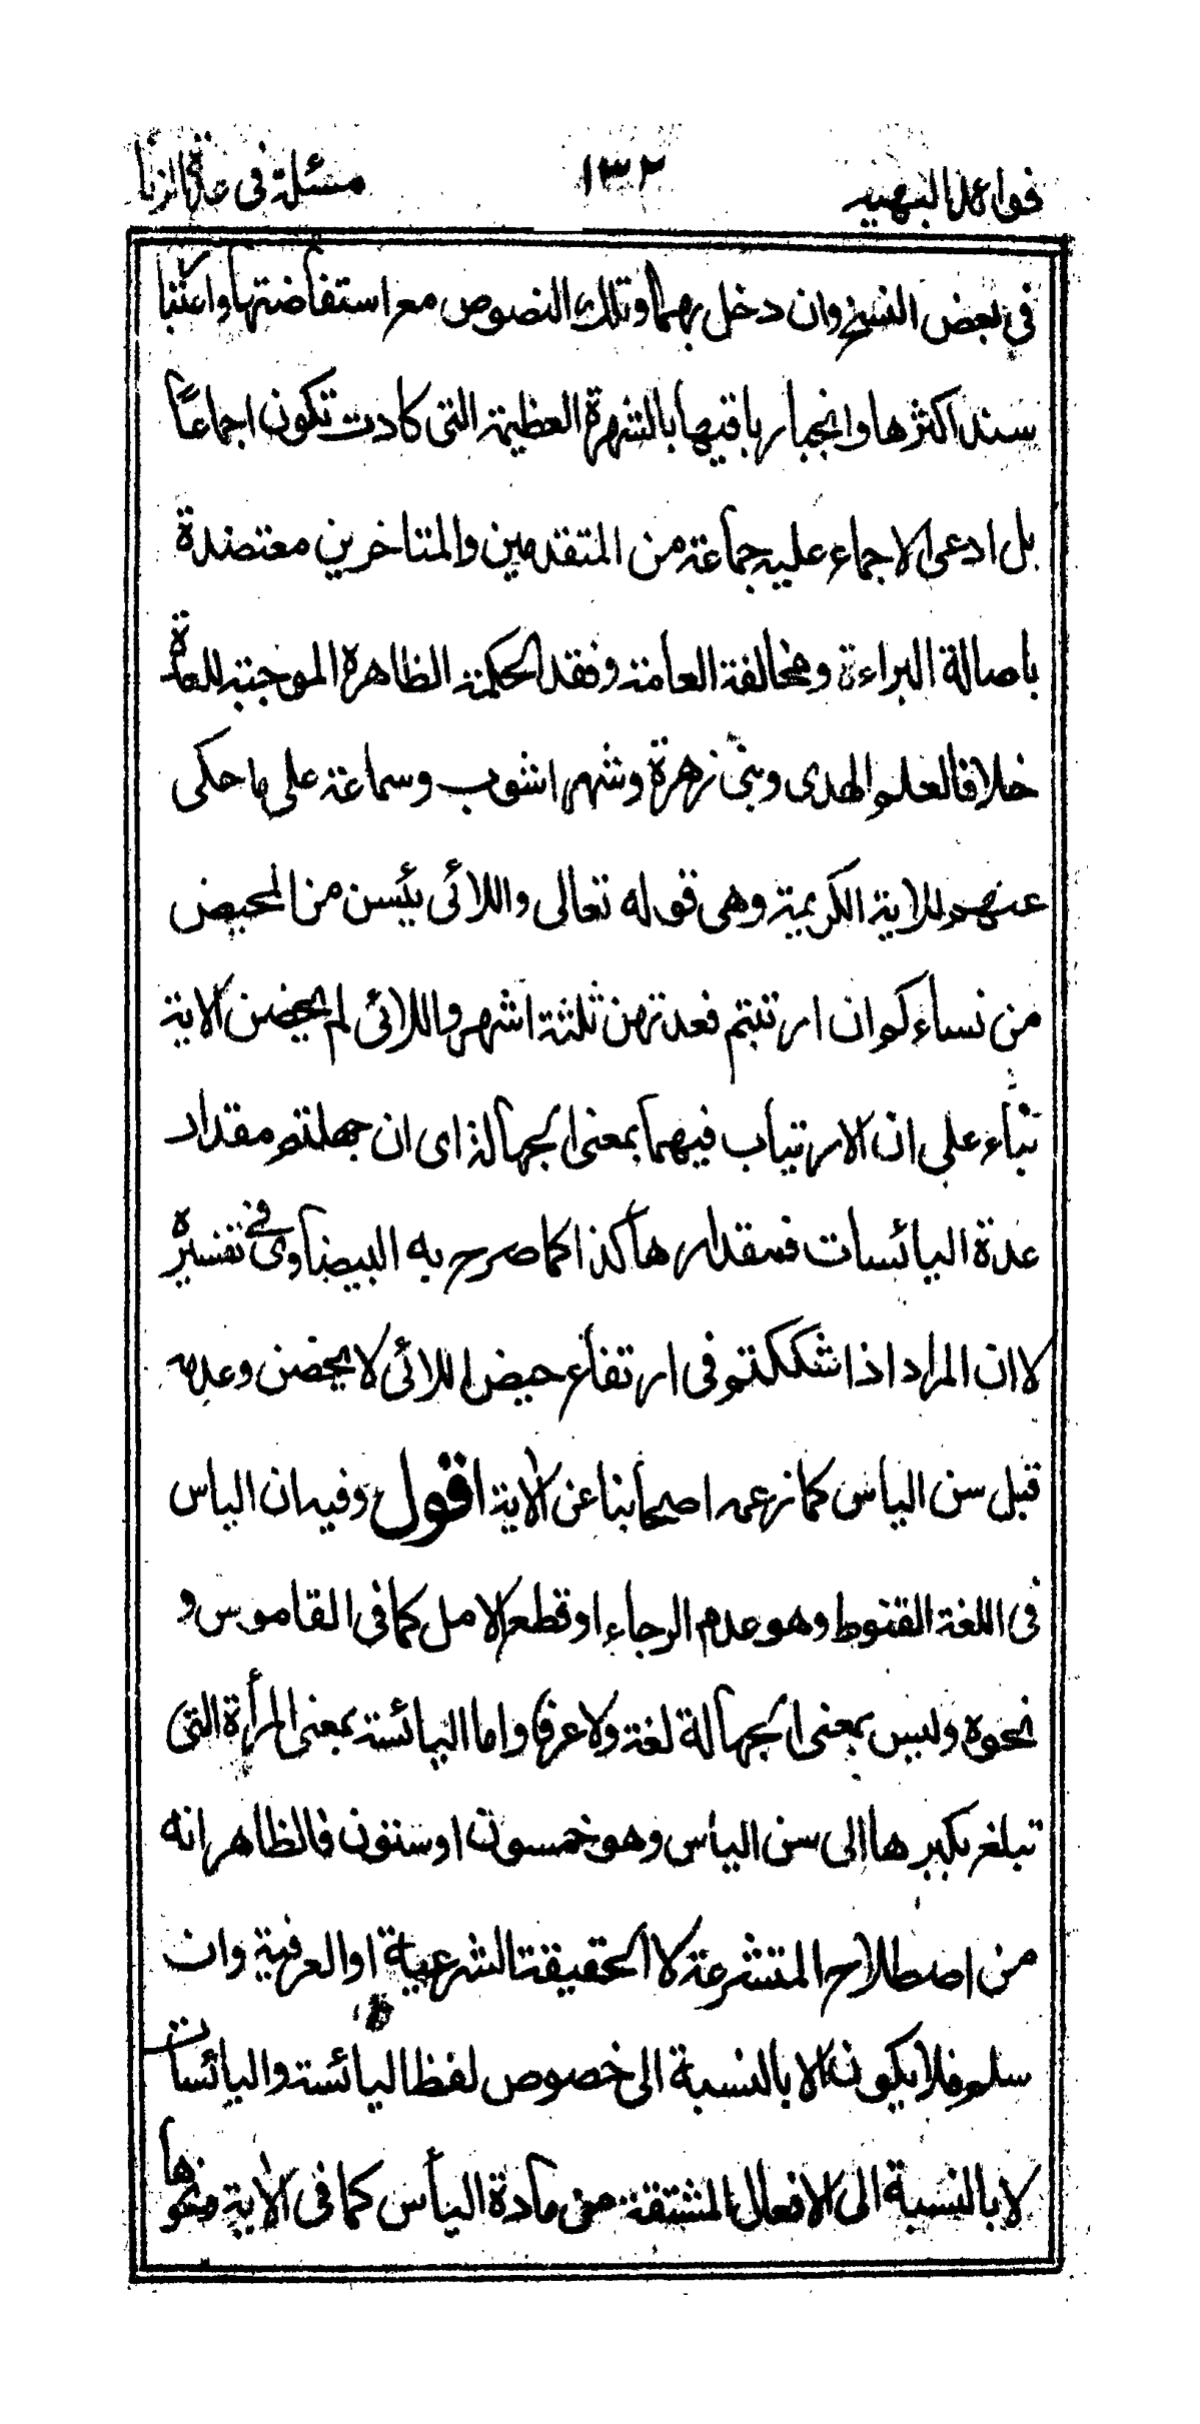 فوائد البهيه ١٣٢ مسئلة في عدة الزنا
في بعض النسخ وان دخل بهما وتلك النصوص مع استفاضتها واعتبا
سند اكثرها وانجبار باقيها بالشهرة العظيمة التى كادت تكون اجماعاً
بل ادعى الاجماع عليه جماعة من المتقدمين والمتاخرين معتضدة
باصالة البراءة ومخالفة العامة وفقد الحكمة الظاهرة الموجبة للعدة
خلافا لعلم الهدى وبنى زهرة وشهر اشوب وسماعة على ما حكى
عنهم للاية الكريمة وهى قوله تعالى واللائى يئسن من المحيض
من نساءكم ان ارتبتم فعدتهن ثلثة اشهر واللائى لم يحضن الاية
بناء على ان الارتياب فيهما بمعنى الجهالة اى ان جهلتم مقدار
عدة اليائسات فمقدارها كذا كما صرح به البيضاوى في تفسيره
لا ان المراد اذا شككتم فى ارتفاع حيض اللائى لا يحضن وعدمه
قبل سن الياس كما زعمه اصحابنا عن الاية اقول وفيه ان الياس
فى اللغة القنوط وهو عدم الرجاء او قطع الامل كما فى القاموس و
نحوه وليس بمعنى الجهالة لغة ولا عرفا واما اليائسة بمعنى المرأة التى
تبلغ بكبرها الى سن الياس وهو خمسون او ستون فالظاهر انه
من اصطلاح المتشرعة لا الحقيقة الشرعية او العرفية وان
سلم فلا يكون الا بالنسبة الى خصوص لفظ اليائسة واليائسات
لا بالنسبة الى الافعال المشتقة من مادة اليأس كما فى الاية ونحوها